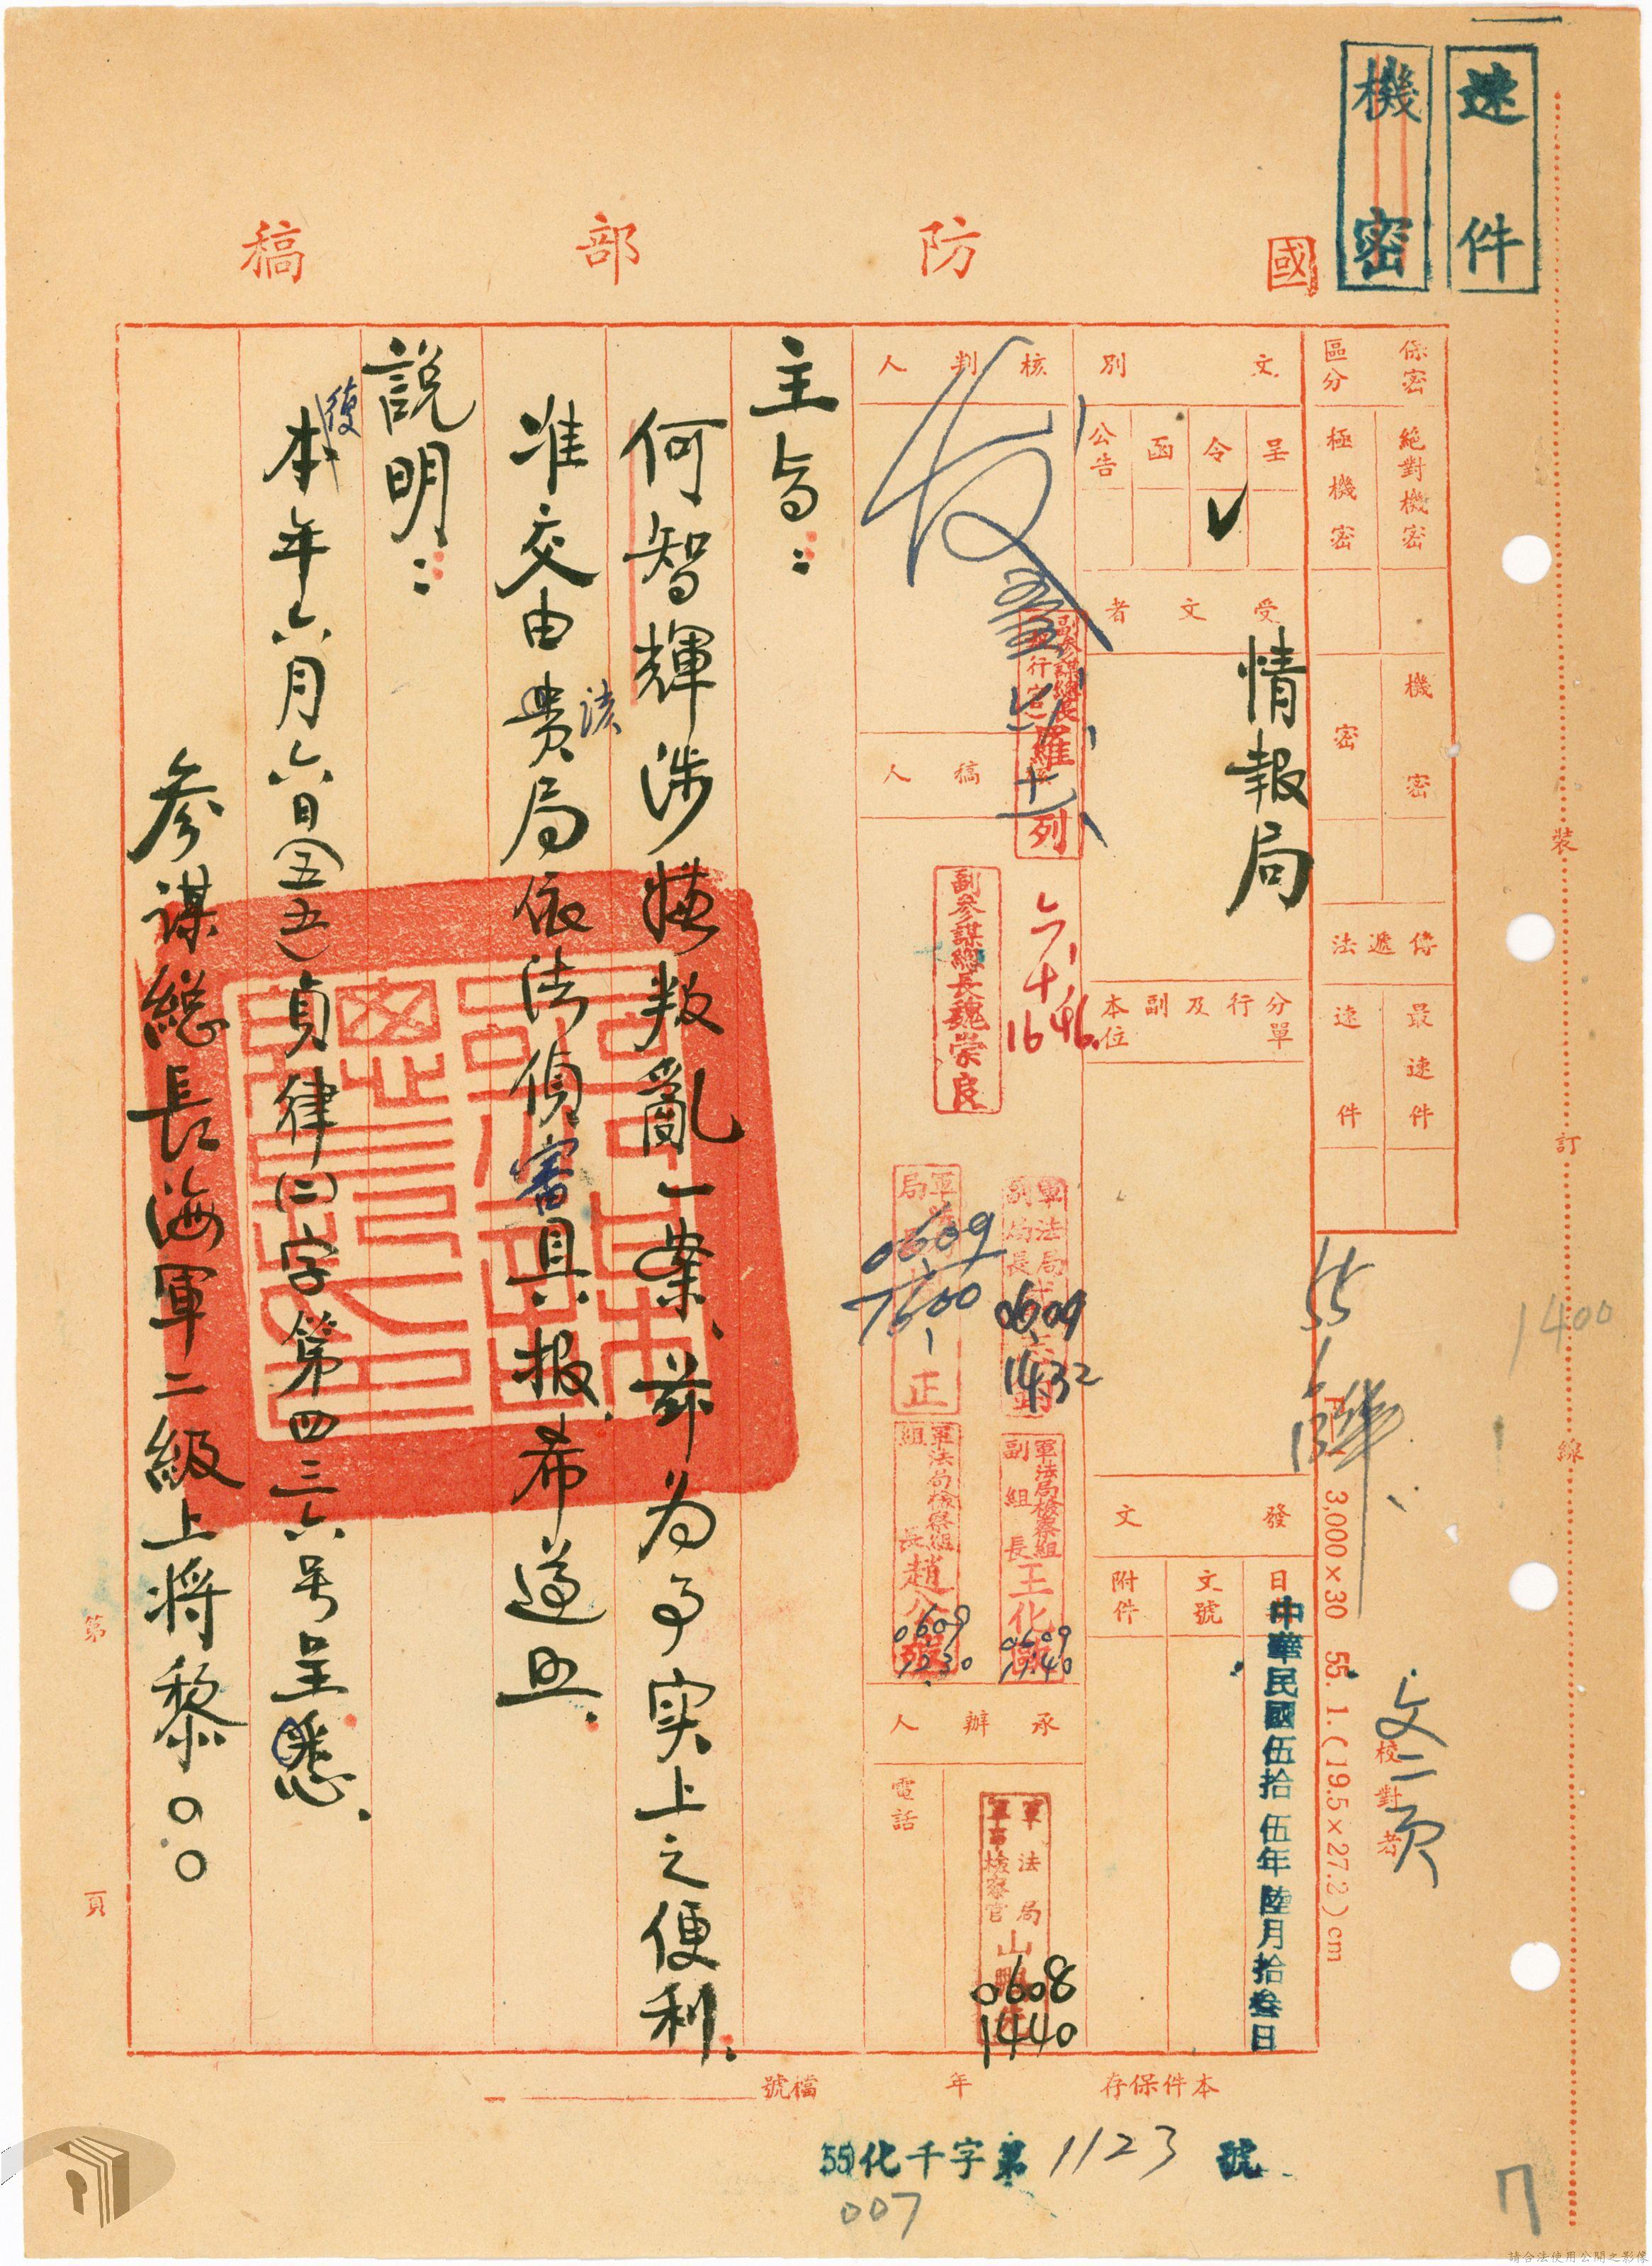 速件
機密
國防部稿
保密區分
絕對機密
極機密
機密
密
傳遞法
最速件
速件
文別
呈
令 ✓
函
公告
受文者
情報局
分行及副本單位
發文
日
中華民國伍拾伍年陸月拾叁日
文號
附件
核判人
副參謀總長
羅列
副參謀總長魏崇良
六、十、
1646.
稿人
軍法局副局長
0609
1432
軍
局
正
0609
1600
軍法局檢察組副組長王化
0609
1140
軍法局檢察組組長趙公
0609
1230
承辦人
軍法局軍事檢察官
0608
1440
電話
主旨：
何智輝涉嫌叛亂一案、茲為事实上之便利、
准交由貴局依法偵審具報、希遵照、
該
說明：
復
本年六月六日(五五)貞律(二)字第四三六号呈悉、
參謀總長海軍二級上將黎○○
本件保存
年
檔號
55化千字第1123號
007
3,000×30 55. 1. (19.5×27.2)cm
校對者
文二頁
1400
裝
訂
線
第
頁
7
請合法使用公開之影像